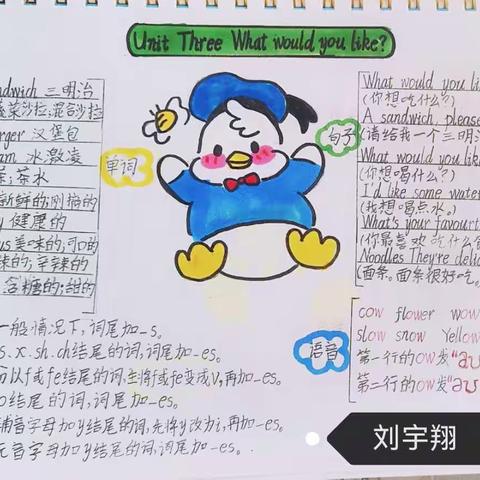 Unit Three What would you like?
三明治
蔬菜沙拉;混合沙拉
汉堡包
冰激凌
茶;茶水
新鲜的;刚摘的
健康的
美味的;可口的
辣的;辛辣的
含糖的;甜的
单词
句子
What would you
(你想吃什么?)
A sandwich, please
(请给我一个三明治
What would you
(你想喝什么?)
I'd like some water
(我想喝点水。)
What's your favourite
(你最喜欢吃什么
Noodles They're
(面条。面条很好吃。
一般情况下,词尾加-s。
s.x.sh.ch结尾的词,词尾加-es。
以f或fe结尾的词,主将f或fe变成v,再加-es。
o结尾的词,词尾加-es。
辅音字母加y结尾的词,先将y改为i,再加-es。
元音字母加y结尾的词,词尾加-es。
语音
cow flower wow
slow snow Yellow
第一行的ow发"au
第二行的ow发"əu
刘宇翔